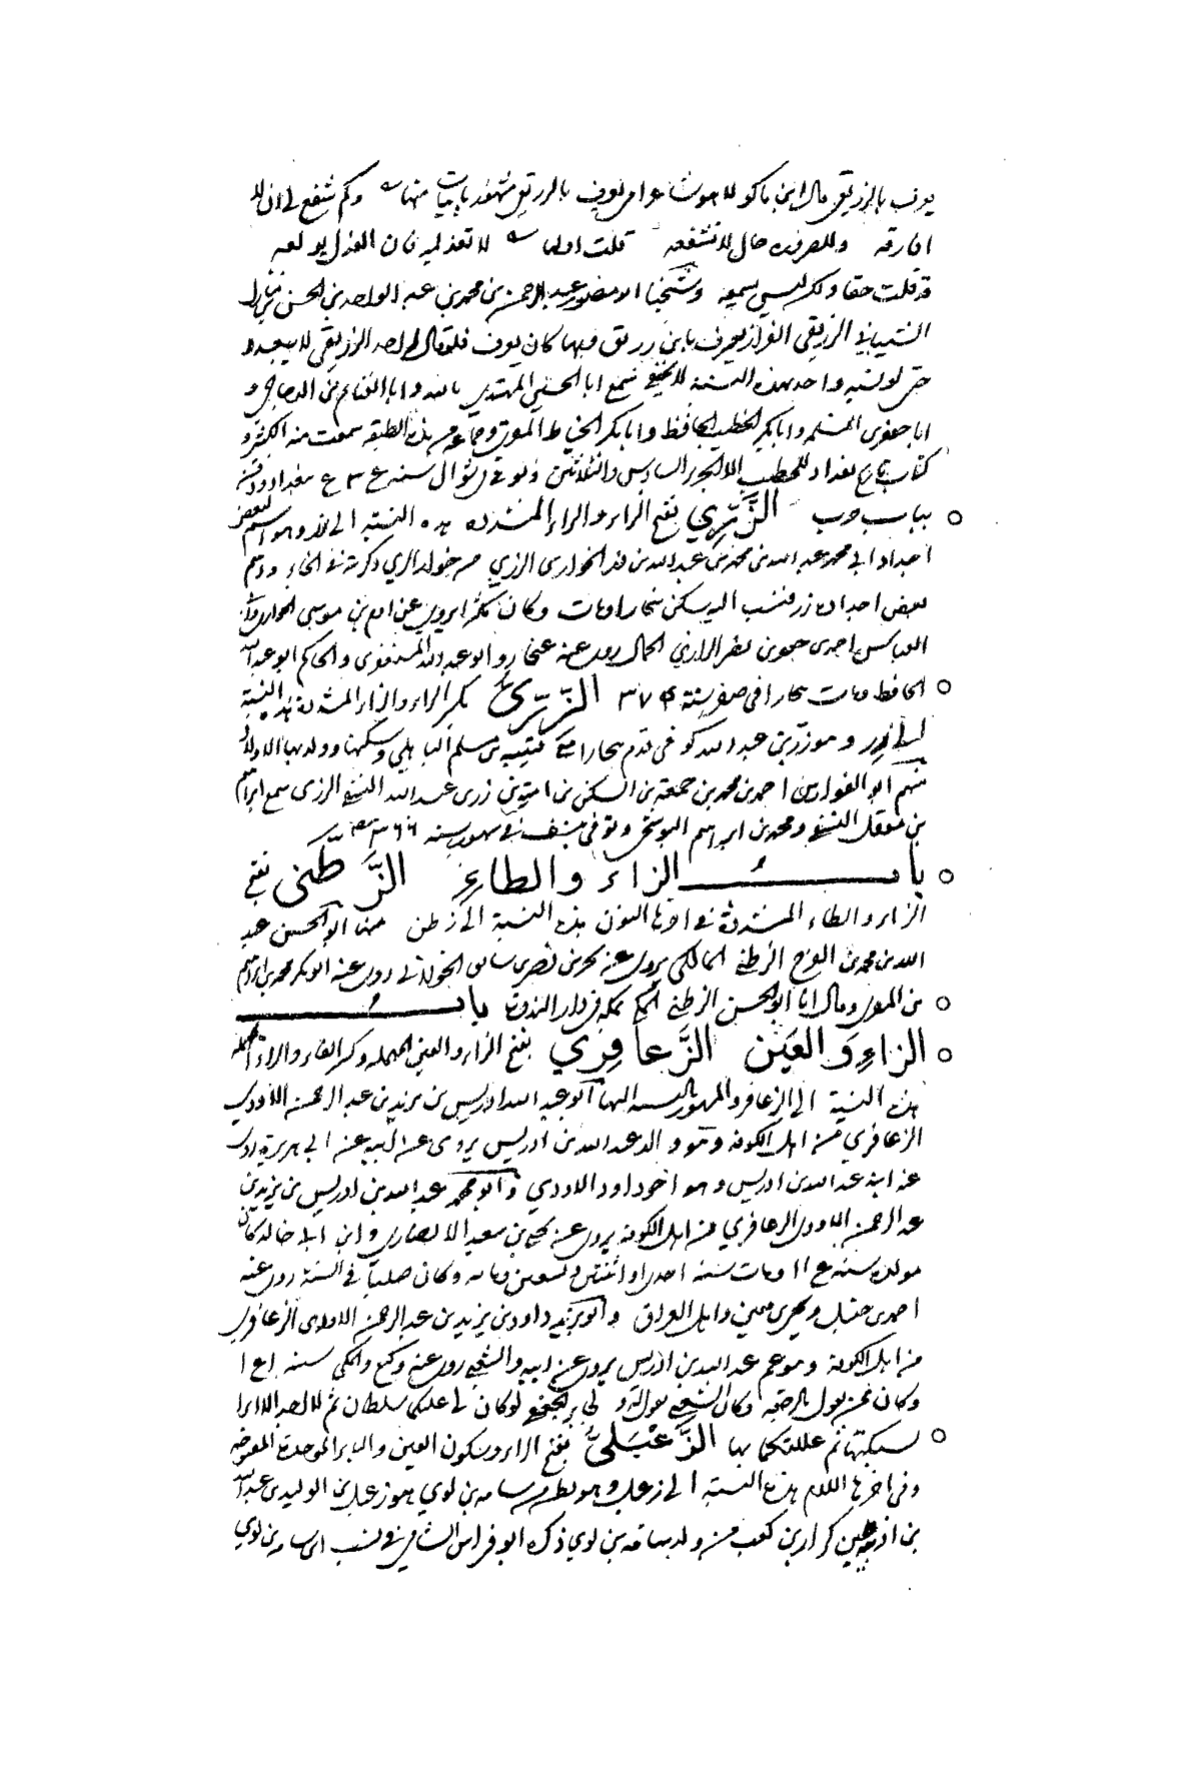 يعرف بالزريقي قال ابن ماكولا هو شاعر يعرف بالزريقي مشهور بابيات منها وكم تشفع لي ان لا
افارقه وللضرورة حال لا تشفعه قلت اولها لا تعذليه فان العذل يولعه
قد قلت حقا ولكن ليس يسمعه وشيخنا ابو منصور عبد الرحمن بن محمد بن عبد الواحد بن الحسن بن منازل
الشيباني الزريقي القزاز يعرف بابن زريق وبها كان يعرف فلو قال احد الزريقي لا يبعد
حتى لو نسبه واحد بهذه النسبة لا يخفى سمع ابا الحسين المهتدي بالله وابا الغنائم بن الدجاجي و
ابا جعفر بن المسلمة وابا بكر الخطيب الحافظ وابا بكر الخياط المقرئ وجماعة من هذه الطبقة سمعت منه الكثير و
كتاب تاريخ بغداد للخطيب الا الجزء السادس والثلاثين وتوفي في شوال سنة ببغداد ودفن
بباب حرب الزَّرِّي بفتح الزاء والراء المشددة هذه النسبة الى زر وهو اسم لبعض
اجداد ابي محمد عبد الله بن محمد بن عبد الله بن الخواري الزري من خوار الري ذكرته في الخاء و
بعض اجداده زر فنسب اليه سكن بخارا ومات وكان مكثرا يروي عن ابراهيم بن موسى
العباس احمد بن جعفر بن نصر الرازي الجمال روى عنه غنجار وابو عبد الله المستغفري والحاكم ابو عبد الله
الحافظ ومات ببخارا في صفر سنة ٣٧ الزِّرِّيّ بكسر الزاء والراء المشددة هذه النسبة
الى زر وهو زر بن عبد الله كوفي قدم بخارا مع قتيبة بن مسلم الباهلي وسكنها وولد بها الاولاد
منهم ابو الفوارس احمد بن محمد بن جمعة بن السكن بن امية بن زر بن عبد الله النسفي الزري سمع ابراهيم
بن معقل النسفي ومحمد بن ابراهيم البوشنجي وتوفي بنسف في شهور سنة ٣٦٦
باب الزاء والطاء الزَّطَني بفتح
الزاء والطاء المشددة في اخرها النون هذه النسبة الى زطن منها ابو الحسن عبد
الله بن محمد بن الفرج الزطني المالكي يروي عن بحر بن نصر بن سابق الخولاني روى عنه ابو بكر محمد بن ابراهيم
بن المقرئ وقال انا ابو الحسن الزطني بمكة في دار الندوة باب
الزاء والعَين الزَّعافِري بفتح الزاء والعين المهملة وكسر الفاء والراء المهملة
هذه النسبة الى الزعافر والمشهور بالنسبة اليها ابو عبد الله ادريس بن يزيد بن عبد الرحمن الاودي
الزعافري من اهل الكوفة وهو والد عبد الله بن ادريس يروي عن ابيه عن ابي هريرة روى
عنه ابنه عبد الله بن ادريس وهو اخو داود الاودي وابو محمد عبد الله بن ادريس بن يزيد بن
عبد الرحمن الاودي الزعافري من اهل الكوفة يروي عن يحيى بن سعيد الانصاري وابن ابي خالد كان
مولده سنة ١١ ومات سنة احدى او اثنتين وتسعين ومائة وكان صلبا في السنة روى عنه
احمد بن حنبل ويحيى بن معين واهل العراق وابو يزيد داود بن يزيد بن عبد الرحمن الاودي الزعافري
من اهل الكوفة وهو عم عبد الله بن ادريس يروي عن ابيه والشعبي روى عنه وكيع والمكي سنة ١٥١
وكان ممن يقول بالرجعة وكان الشعبي يقول له ولجابر الجعفي لو كان لي عليكما سلطان ثم لم اجد الا ابرا
لشبكتكما ثم غللتكما بها الزَّعْبَلِيّ بفتح الزاء وسكون العين والباء الموحدة المفتوحة
وفي اخرها اللام هذه النسبة الى زعبل وهو بطن من سامة بن لوي هو زعبل بن الوليد بن عبد الله
بن كرار بن كعب من ولد سامة بن لوي ذكره ابو فراس الشامي في نسب بني سامة بن لوي